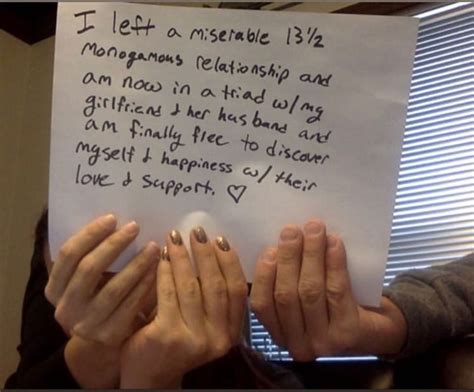 I left a miserable 13½
monogamous relationship and
am now in a triad w/my
girlfriend & her husband and
am finally free to discover
myself & happiness w/ their
love & support. ♡